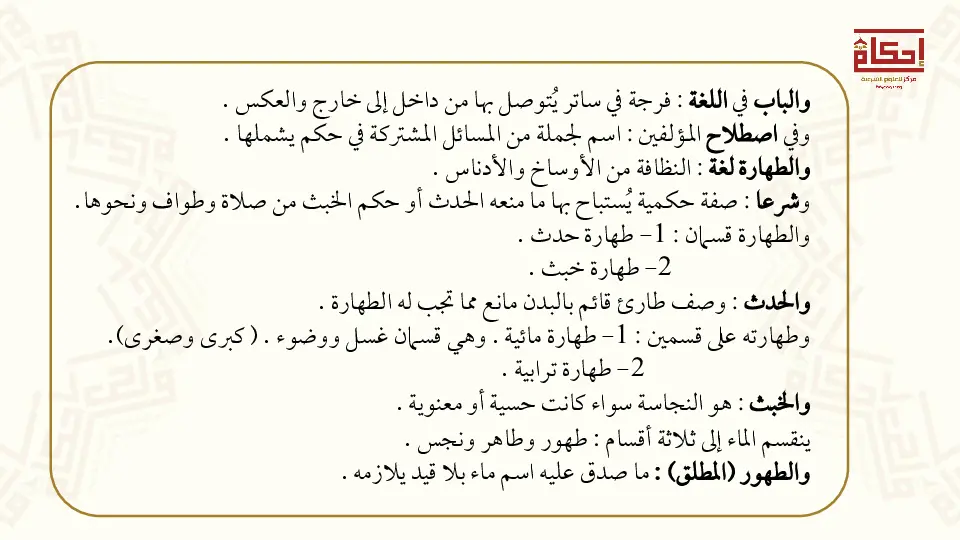 إحكام
مركز للعلوم الشرعية
والباب في اللغة : فرجة في ساتر يُتوصل بها من داخل إلى خارج والعكس .
وفي اصطلاح المؤلفين : اسم لجملة من المسائل المشتركة في حكم يشملها .
والطهارة لغة : النظافة من الأوساخ والأدناس .
وشرعا : صفة حكمية يُستباح بها ما منعه الحدث أو حكم الخبث من صلاة وطواف ونحوها.
والطهارة قسمان : 1- طهارة حدث .
2- طهارة خبث .
والحدث : وصف طارئ قائم بالبدن مانع مما تجب له الطهارة .
وطهارته على قسمين : 1- طهارة مائية . وهي قسمان غسل ووضوء . (كبرى وصغرى).
2- طهارة ترابية .
والخبث : هو النجاسة سواء كانت حسية أو معنوية .
ينقسم الماء إلى ثلاثة أقسام : طهور وطاهر ونجس .
والطهور (المطلق) : ما صدق عليه اسم ماء بلا قيد يلازمه .